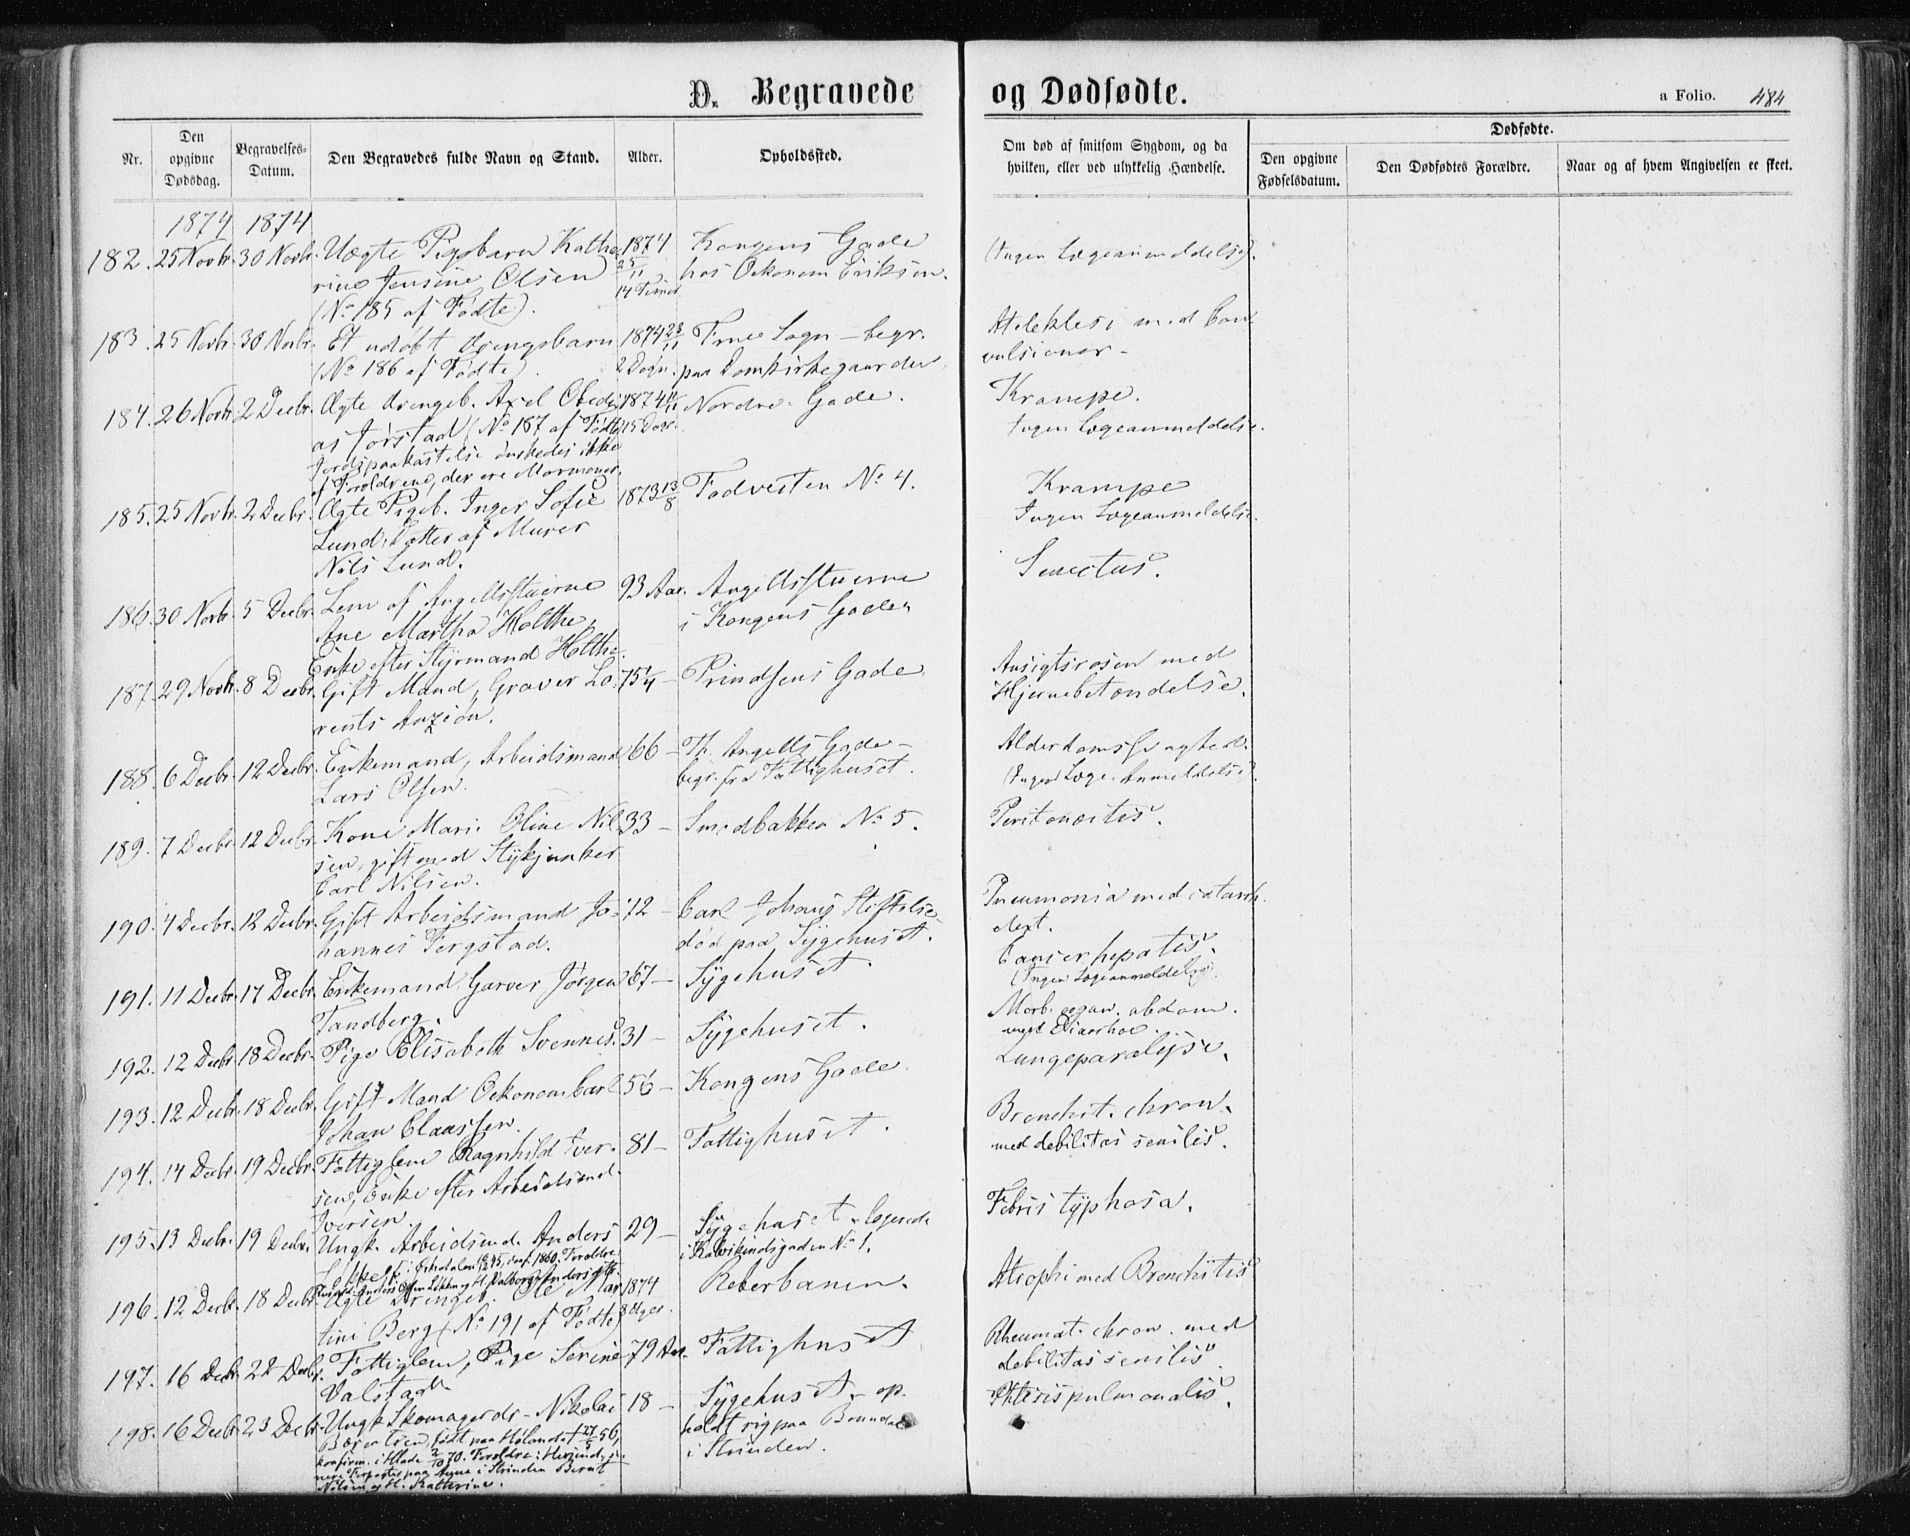 D. Begravede og Dødfødte. a Folio. 484
Nr. Den opgivne Dødsdag. Begravelses-Datum. Den Begravedes fulde Navn og Stand. Alder. Opholdssted. Om død af smitsom Sygdom, og da hvilken, eller ved ulykkelig Hændelse. Den opgivne Fødselsdatum. Den Dødfødtes Forældre. Naar og af hvem Angivelsen er skeet.
Dødfødte.
1874 1874
182. 25 Novbr. 30 Novbr. Uægte Pigebarn Katha- 1874 Kongens Gade (Ingen Lægeanmeldelse).
rine Jensine Olsen 25/11 hos Oekonom Eriksen.
(No 185 af Fødte). 14 Timer
183. 25 Novbr. 30 Novbr. Et udøbt Drengebarn 1874 23/11 Frue Sogn - begr. Atelektesi med Con-
(No 186 af Fødte). 2 Døgn. paa Domkirkegaarden vulsioner -
184. 26 Novbr. 2 Decbr. Ægte Drengeb. Axel Obedi- 1874 11/11 Nordre Gade. Krampe.
as Jørstad (No 187 af Fødte) 15 Dage Ingen Lægeanmeldelse.
Jordspaakastelse ønskedes ikke
af Forældrene, der ere Mormoner.
185. 25 Novbr. 2 Decbr. Ægte Pigeb. Inger Sofie 1873 13/8 Fadvesten No 4. Krampe
Lund, Datter af Murer Ingen Lægeanmeldelse.
Nils Lund.
186. 30 Novbr. 5 Decbr. Lem af Angellsstuerne 93 Aar. Angellsstuerne Senectus.
Ane Martha Holthe, i Kongens Gade
Enke efter Styrmand Holthe.
187. 29 Novbr. 8 Decbr. Gift Mand, Graver Lo- 75 1/4 - Prindsens Gade Ansigtsrosen med
rents Anzion. Hjernebetændelse.
188. 6 Decbr. 12 Decbr. Enkemand, Arbeidsmand 66 - Th. Angells Gade - Alderdomssvaghed.
Lars Olsen. begr. fra Fattighuset. (Ingen Læge-Anmeldelse).
189. 7 Decbr. 12 Decbr. Kone Marie Oline Nil- 33 - Smedbakken No 5. Peritonitis.
sen, gift med Stykjunker
Carl Nilsen.
190. 4 Decbr. 12 Decbr. Gift Arbeidsmand Jo- 72 - Carl Johans Stiftelse Pneumonia med catarrh.
hannes Fergstad. død paa Sygehuset. dext.
191. 11 Decbr. 17 Decbr. Enkemand Garver Jørgen 67 - Sygehuset. Cancer hepatis.
Tandberg. (Ingen Lægeanmeldelse)
192. 12 Decbr. 18 Decbr. Pige Elisabeth Svennes. 31 - Sygehuset. Morb. organ. abdom.
med Diarrhoe.
193. 12 Decbr. 18 Decbr. Gift Mand Oekonom Carl 56 - Kongens Gade. Lungeparalyse.
Johan Claassen.
194. 14 Decbr. 19 Decbr. Fattiglem Ragnhild Iver- 81 - Fattighuset. Bronchit. chron.
sen, Enke efter Arbeidsmd. med debilitas senilis.
Iversen
195. 13 Decbr. 19 Decbr. Ungk. Arbeidsmd. Anders 29 - Sygehuset - logerede Febris typhosa.
i Kalvskindsgaden No 1.
196. 12 Decbr. 18 Decbr. Ægte Drengeb. Ole Mar- 1874 Reberbanen. Atrophi med Bronchitis
tini Berg (No 191 af Fødte) 3 Uger.
197. 16 Decbr. 22 Decbr. Fattiglem, Pige Serine 79 Aar. Fattighuset Rheumat. chron. med
Valstad. debilitas senilis.
198. 16 Decbr. 23 Decbr. Ungk. Skomagerdr. Nikolai 18 - Sygehuset - op- Phtisis pulmonalis.
født paa 27/5 56, holdt sig paa
konfirm. i Hlade 2/10 70. Forældre: i Strinden.
paa i Strinden Bernt
Nilsen og H. Kathrine.